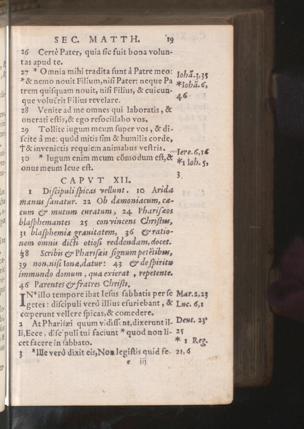 SEC. MATTH. 19
26 Certè Pater, quia sic fuit bona volun-
tas apud te.
27 * Omnia mihi tradita sunt à Patre meo:
* & nemo nouit Filium, nisi Pater: neque Pa
trem quisquam nouit, nisi Filius, & cuicun-
que volucrit Filius reuelare.
28 Venite ad me omnes qui laboratis, &
onerati estis, & ego refocillabo vos.
29 Tollite iugum meum super vos, & di-
scite à me: quòd mitis sim & humilis corde,
†& inuenietis requiem animabus vestris.
30 * Iugum enim meum cõmodum est, &
onus meum leue est.
Iohã.3.35
*Iohã.6,
46.
Iere.6,16
*1 Ioh. 5,
3
CAPVT XII.
1 Discipuli spicas vellunt. 10 Arida
manus sanatur. 22 Ob dæmoniacum, cæ-
cum & mutum curatum, 24 Pharisæos
blasphemantes 25 conuincens Christus,
31 blasphemiæ grauitatem, 36 & ratio-
nem omnis dicti otiosi reddendam, docet.
38 Scribis & Pharisæis signum petẽtibus,
39 non, nisi Ionæ, datur: 43 de spiritu
immundo domum, qua exierat, repetente.
46 Parentes & fratres Christi.
IN * illo tempore ibat Iesus sabbatis per se
getes: discipuli verò illius esuriebant, &
cœperunt vellere spicas, & comedere.
2 At Pharisæi quum vidissent, dixerunt il-
li, Ecce, discipuli tui faciunt * quod non li-
cet facere in sabbato.
3 * Ille verò dixit eis, Non legistis quid fe-
Mar.2,23
Luc.6,1
Deut. 23
25
* 1 Reg.
21,6
c iij